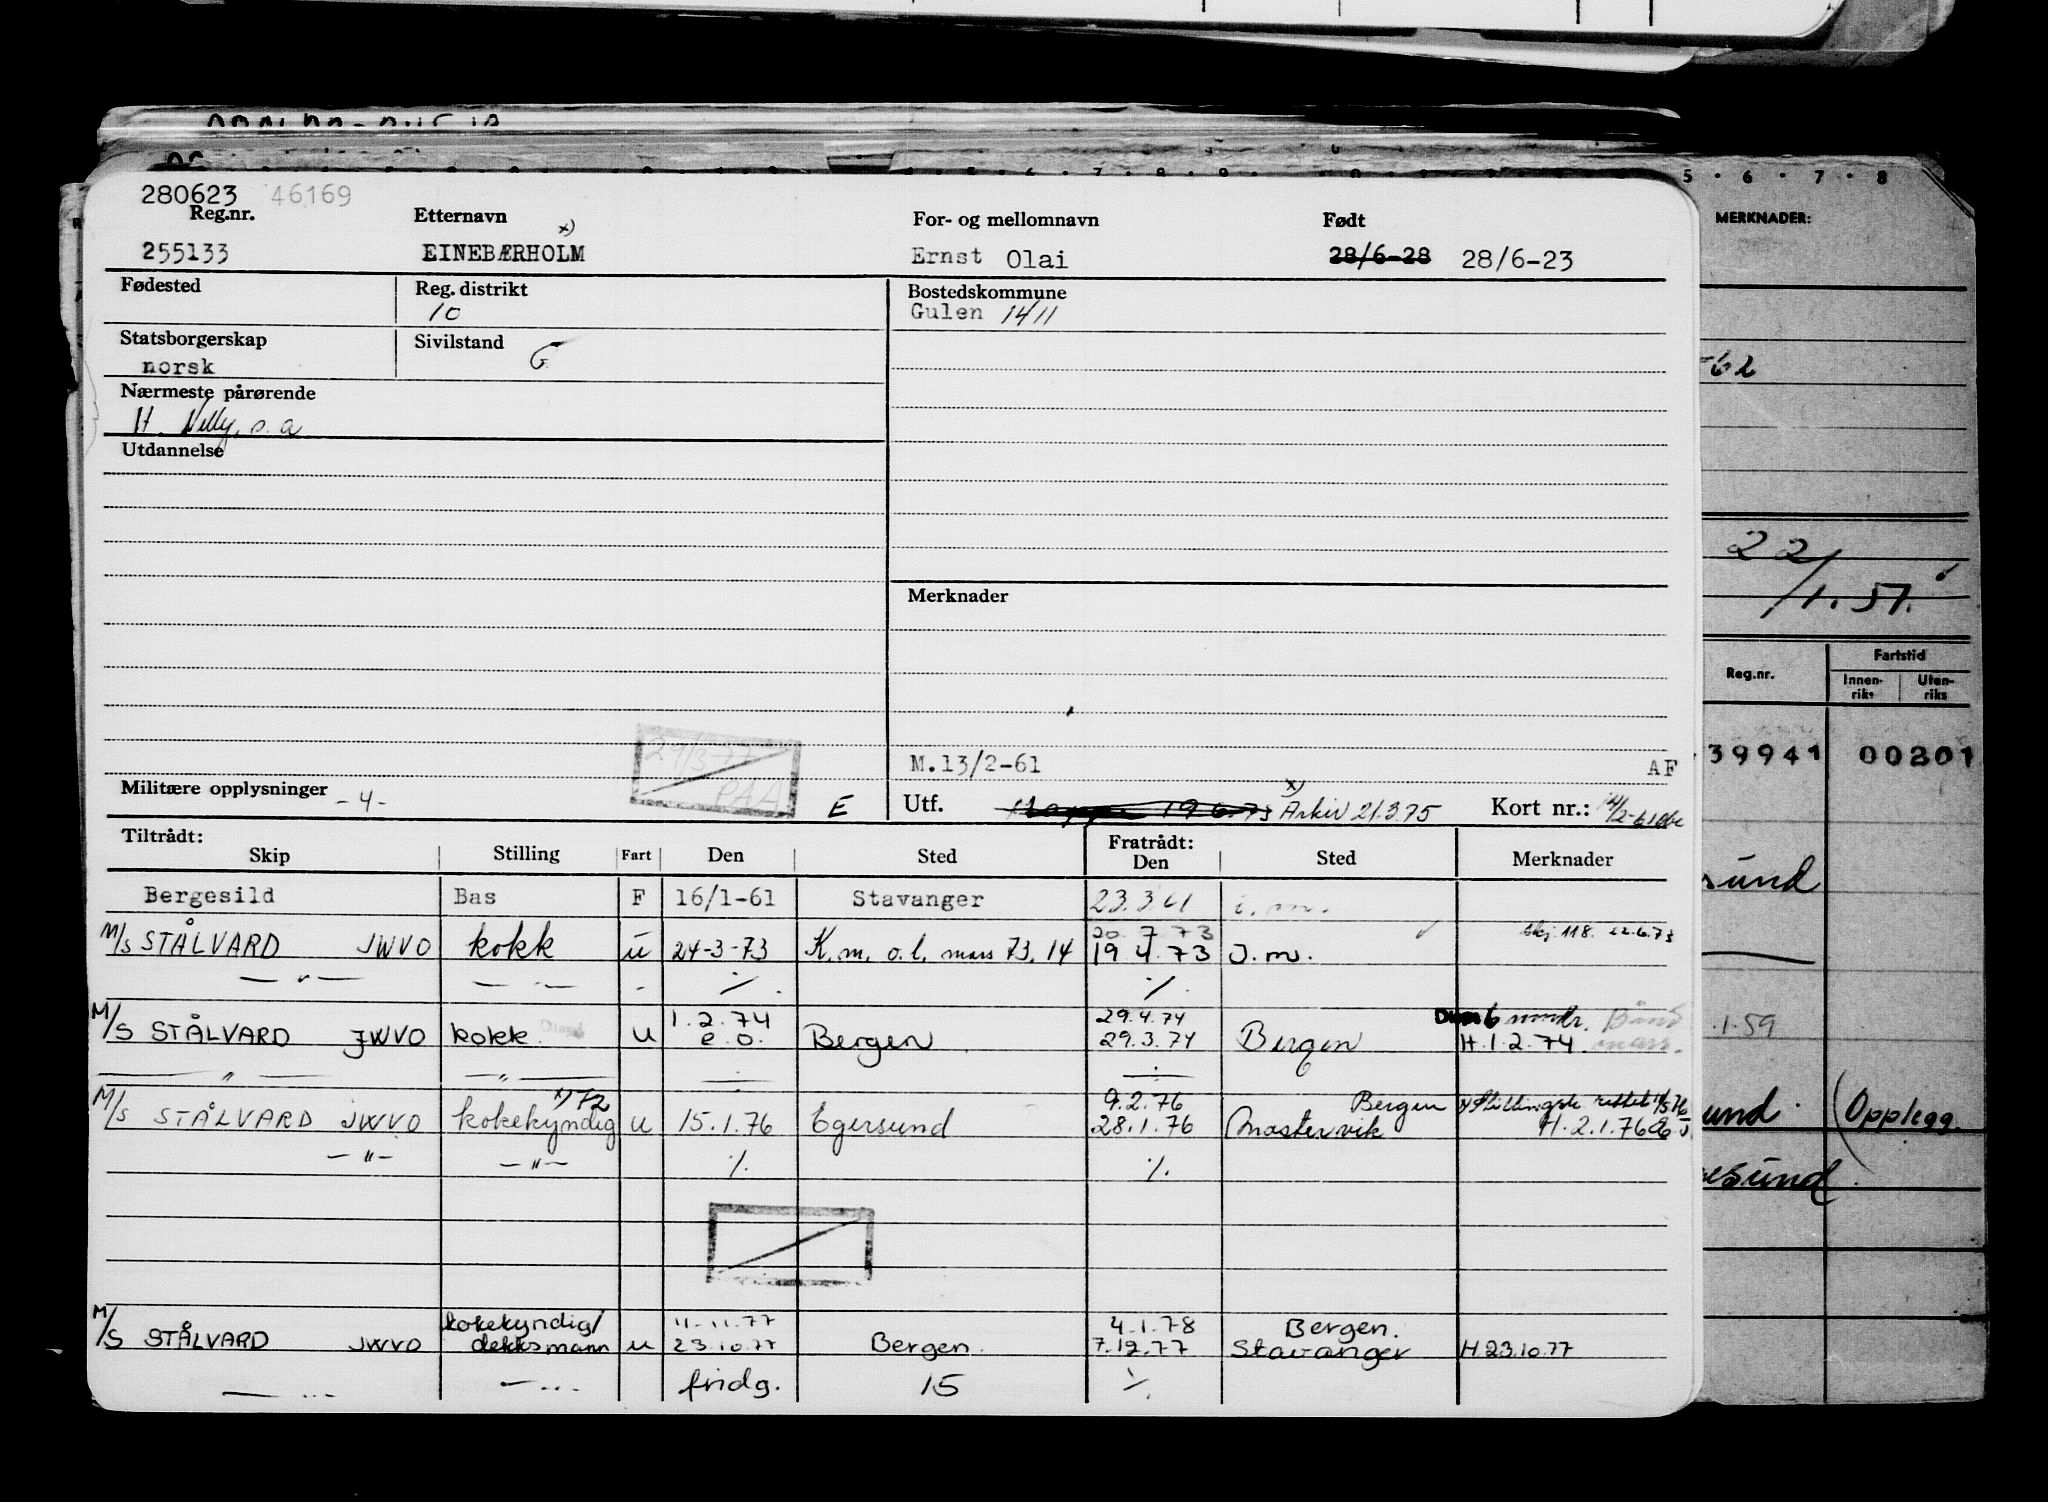 280623 46169
Reg.nr. Etternavn For- og mellomnavn Født
255133 EINEBÆRHOLM x) Ernst Olai 28/6-28 28/6-23
Fødested Reg. distrikt Bostedskommune
10 Gulen 1411
Statsborgerskap Sivilstand
norsk G
Nærmeste pårørende
H. Nelly, s. a
Utdannelse
Merknader
M.13/2-61 AF
29/3-77
PAA
Militære opplysninger -4- E Utf. 19.6.73 x) Arkiv 21.3.75 Kort nr.:
Tiltrådt: Fratrådt:
Skip Stilling Fart Den Sted Den Sted Merknader
Bergesild Bas F 16/1-61 Stavanger 23.3.61 i.m.
20.7.73 skj. 118. 22.6.73
M/S STÅLVARD JWVO kokk u 24-3-73 K.m. o.l. mars 73, 14 19 4.73 J.m.
— " — — " — - ·/. ·/.
1.2.74 29.4.74 6 mndr.
M/S STÅLVARD JWVO kokk u e.o. Bergen 29.3.74 Bergen H.1.2.74
— " — — " —
x) 72 9.2.76 Bergen
M/S STÅLVARD JWVO kokekyndig u 15.1.76 Egersund 28.1.76 Mastrevik H.2.1.76
— " — — " — ·/. ·/.
kokekyndig/ 11.11.77 4.1.78 Bergen.
M/S STÅLVARD JWVO dekksmann u 23.10.77 Bergen. 7.12.77 Stavanger H 23.10.77
fridg. 15 ·/.
5 · 6 · 7 · 8
MERKNADER:
-62
22/1.57.
Reg.nr. Fartstid
Innen-riks Uten-riks
39941 00201
sund
.1.59
sund. (Opplegg.
esund.